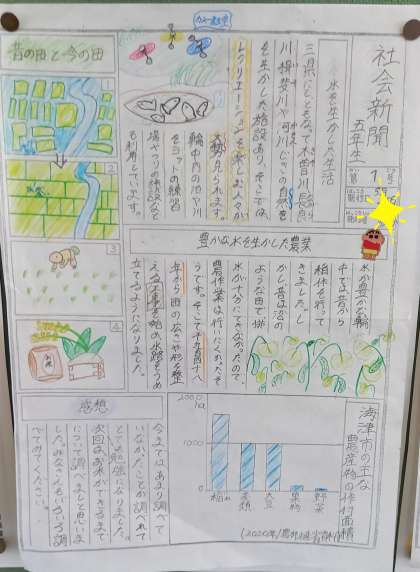 社会新聞
五年生
第1号
水を生かした生活
三県にまたがって木曽川、長良
川、揖斐川や河川じきの自然
を生かした施設があり、そこでは
レクリエーションを楽しむ人々が
大勢見られます。
輪中内の池や川
をヨットの練習
場やつりの施設など
も利用しています。
昔の田と今の田
1
2
3
4
お米
豊かな水を生かした農業
水が豊かな輪
中では昔から
稲作を行って
きました。し
かし昔は沼の
ような田で排
水が十分にできなかったので、
農作業は行いにくかったそ
うです。そこで
年から田の広さや形を整
える工事を始め水路をうめ
立てるようになりました。
海津市の主な
農産物の作付面積
2000
ha
1000
0
稲
麦類
大豆
果物
野菜
感想
今まではあまり調べて
いなかったことが調べれて
とても勉強になりました。
次回はお米ができるまで
について調べましたと思いま
した。みなさんもいろいろ調
べてみてください。